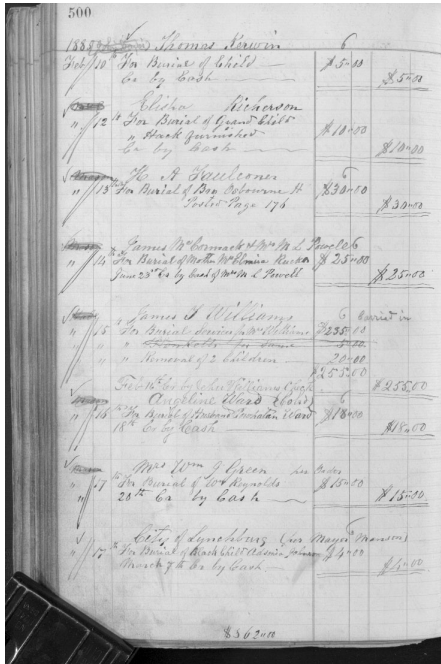 500
1883 Thomas Kerwin 6
Feby 10th For Burial of Child $5.00
Cr By Cash $5.00
Elisha Richerson
" 12th For Burial of Grand Child
" Hack furnished $10.00
Cr by Cash $10.00
H A Faulconer 6
" 13th For Burial of Boy Osbourne H $30.00
Posted Page 176 $30.00
James McCormack & Mrs M L Powell 6
" 14th For Burial of Mother Mrs Elmira Rucker $25.00
June 23d Cr by Cash of Mrs M L Powell $25.00
James T Williams 6 Carried in
" 15 For Burial Services for Mrs Williams $235.00
" " for same 5.00
" " Removal of 2 Children 20.00
$255.00
Feby 16th Cr by John Williams Check $255.00
Angeline Ward (Cold) 6
" 16th For Burial of Husband Powhatan Ward $18.00
18th Cr by Cash $18.00
Mrs Wm J Green
" 17th For Burial of Wm Reynolds $15.00
20th Cr by Cash $15.00
City of Lynchburg (per Mayor Manson)
" 17th For Burial of Black Child Johnson $4.00
March 7th Cr by Cash $4.00
$362.00